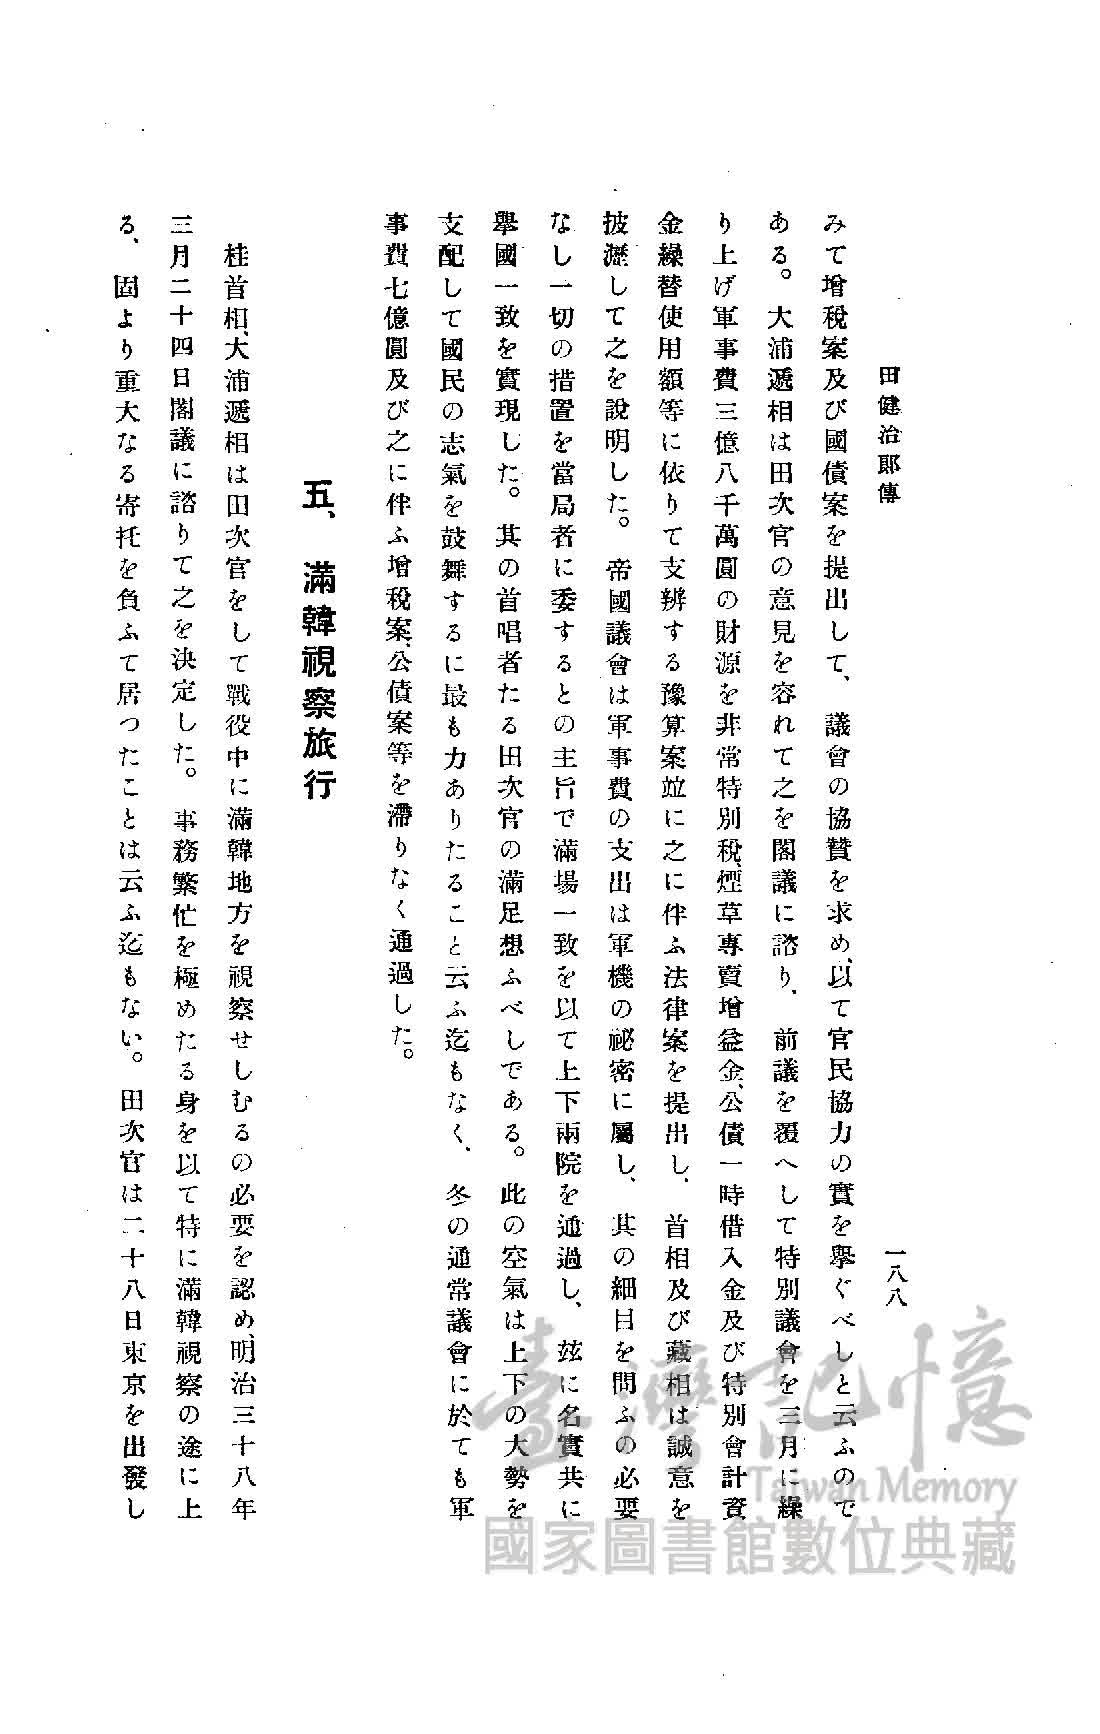 田健治郎傳
一八八
みて增稅案及び國債案を提出して、議會の協贊を求め、以て官民協力の實を擧ぐべしと云ふので
ある。大浦遞相は田次官の意見を容れて之を閣議に諮り、前議を覆へして特別議會を三月に繰
り上げ軍事費三億八千萬圓の財源を非常特別稅、煙草專賣增益金、公債一時借入金及び特別會計資
金繰替使用額等に依りて支辨する豫算案竝に之に伴ふ法律案を提出し、首相及び藏相は誠意を
披瀝して之を說明した。帝國議會は軍事費の支出は軍機の祕密に屬し、其の細目を問ふの必要
なし一切の措置を當局者に委するとの主旨で滿場一致を以て上下兩院を通過し、玆に名實共に
擧國一致を實現した。其の首唱者たる田次官の滿足想ふべしである。此の空氣は上下の大勢を
支配して國民の志氣を鼓舞するに最も力ありたること云ふ迄もなく、冬の通常議會に於ても軍
事費七億圓及び之に伴ふ增稅案、公債案等を滯りなく通過した。
五、滿韓視察旅行
桂首相、大浦遞相は田次官をして戰役中に滿韓地方を視察せしむるの必要を認め、明治三十八年
三月二十四日閣議に諮りて之を決定した。事務繁忙を極めたる身を以て特に滿韓視察の途に上
る、固より重大なる寄托を負ふて居つたことは云ふ迄もない。田次官は二十八日東京を出發し
臺灣記憶
Taiwan Memory
國家圖書館數位典藏